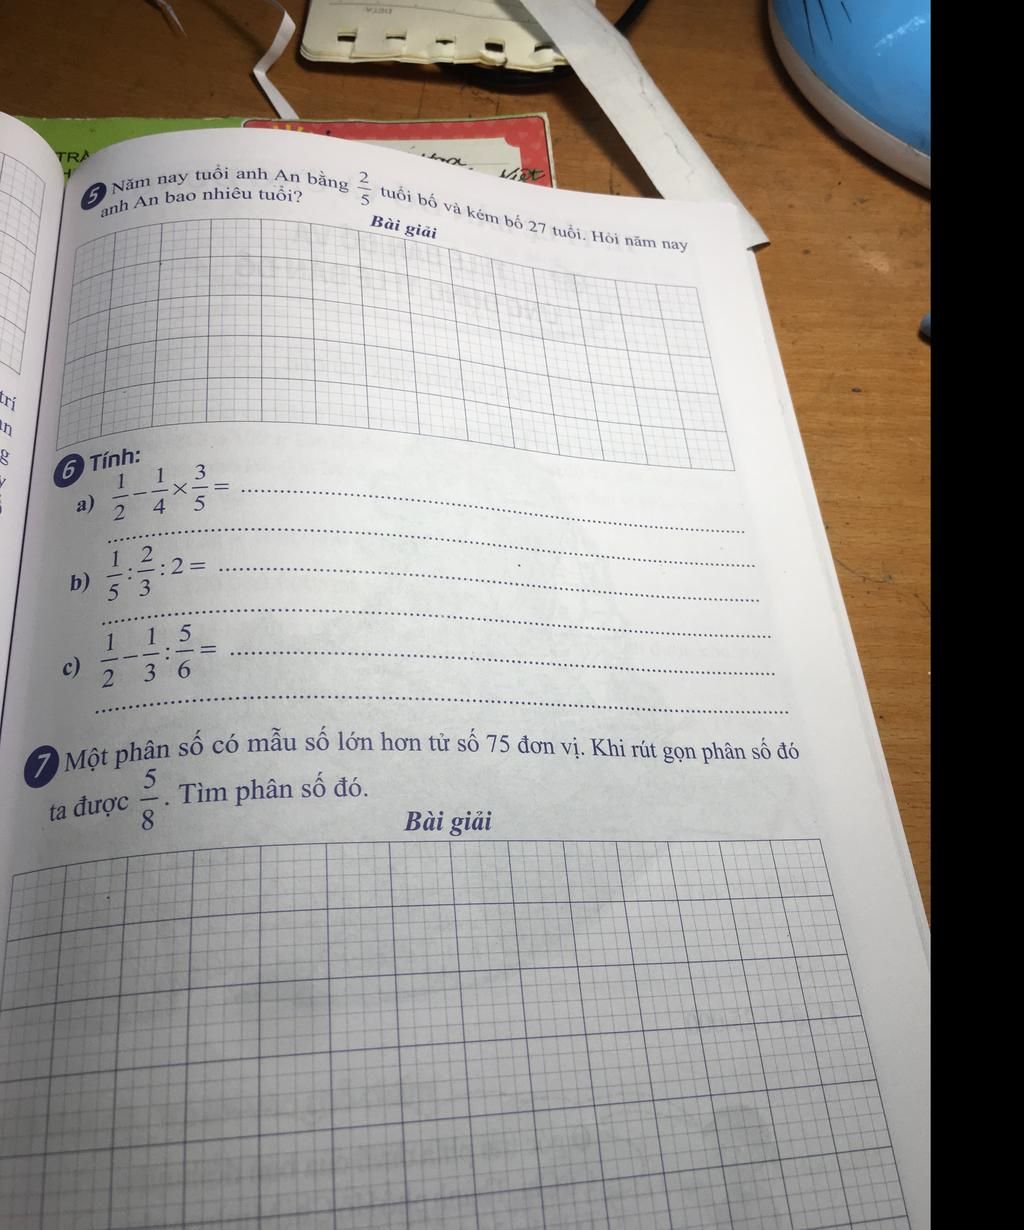 DELTA
TRẦ
H
Việt
5 Năm nay tuổi anh An bằng 2/5 tuổi bố và kém bố 27 tuổi. Hỏi năm nay
anh An bao nhiêu tuổi?
Bài giải
trí
6 Tính:
a) 1/2 − 1/4 × 3/5 = ....................
....................
b) 1/5 : 2/3 : 2 = ....................
....................
c) 1/2 − 1/3 : 5/6 = ....................
....................
7 Một phân số có mẫu số lớn hơn tử số 75 đơn vị. Khi rút gọn phân số đó
ta được 5/8. Tìm phân số đó.
Bài giải